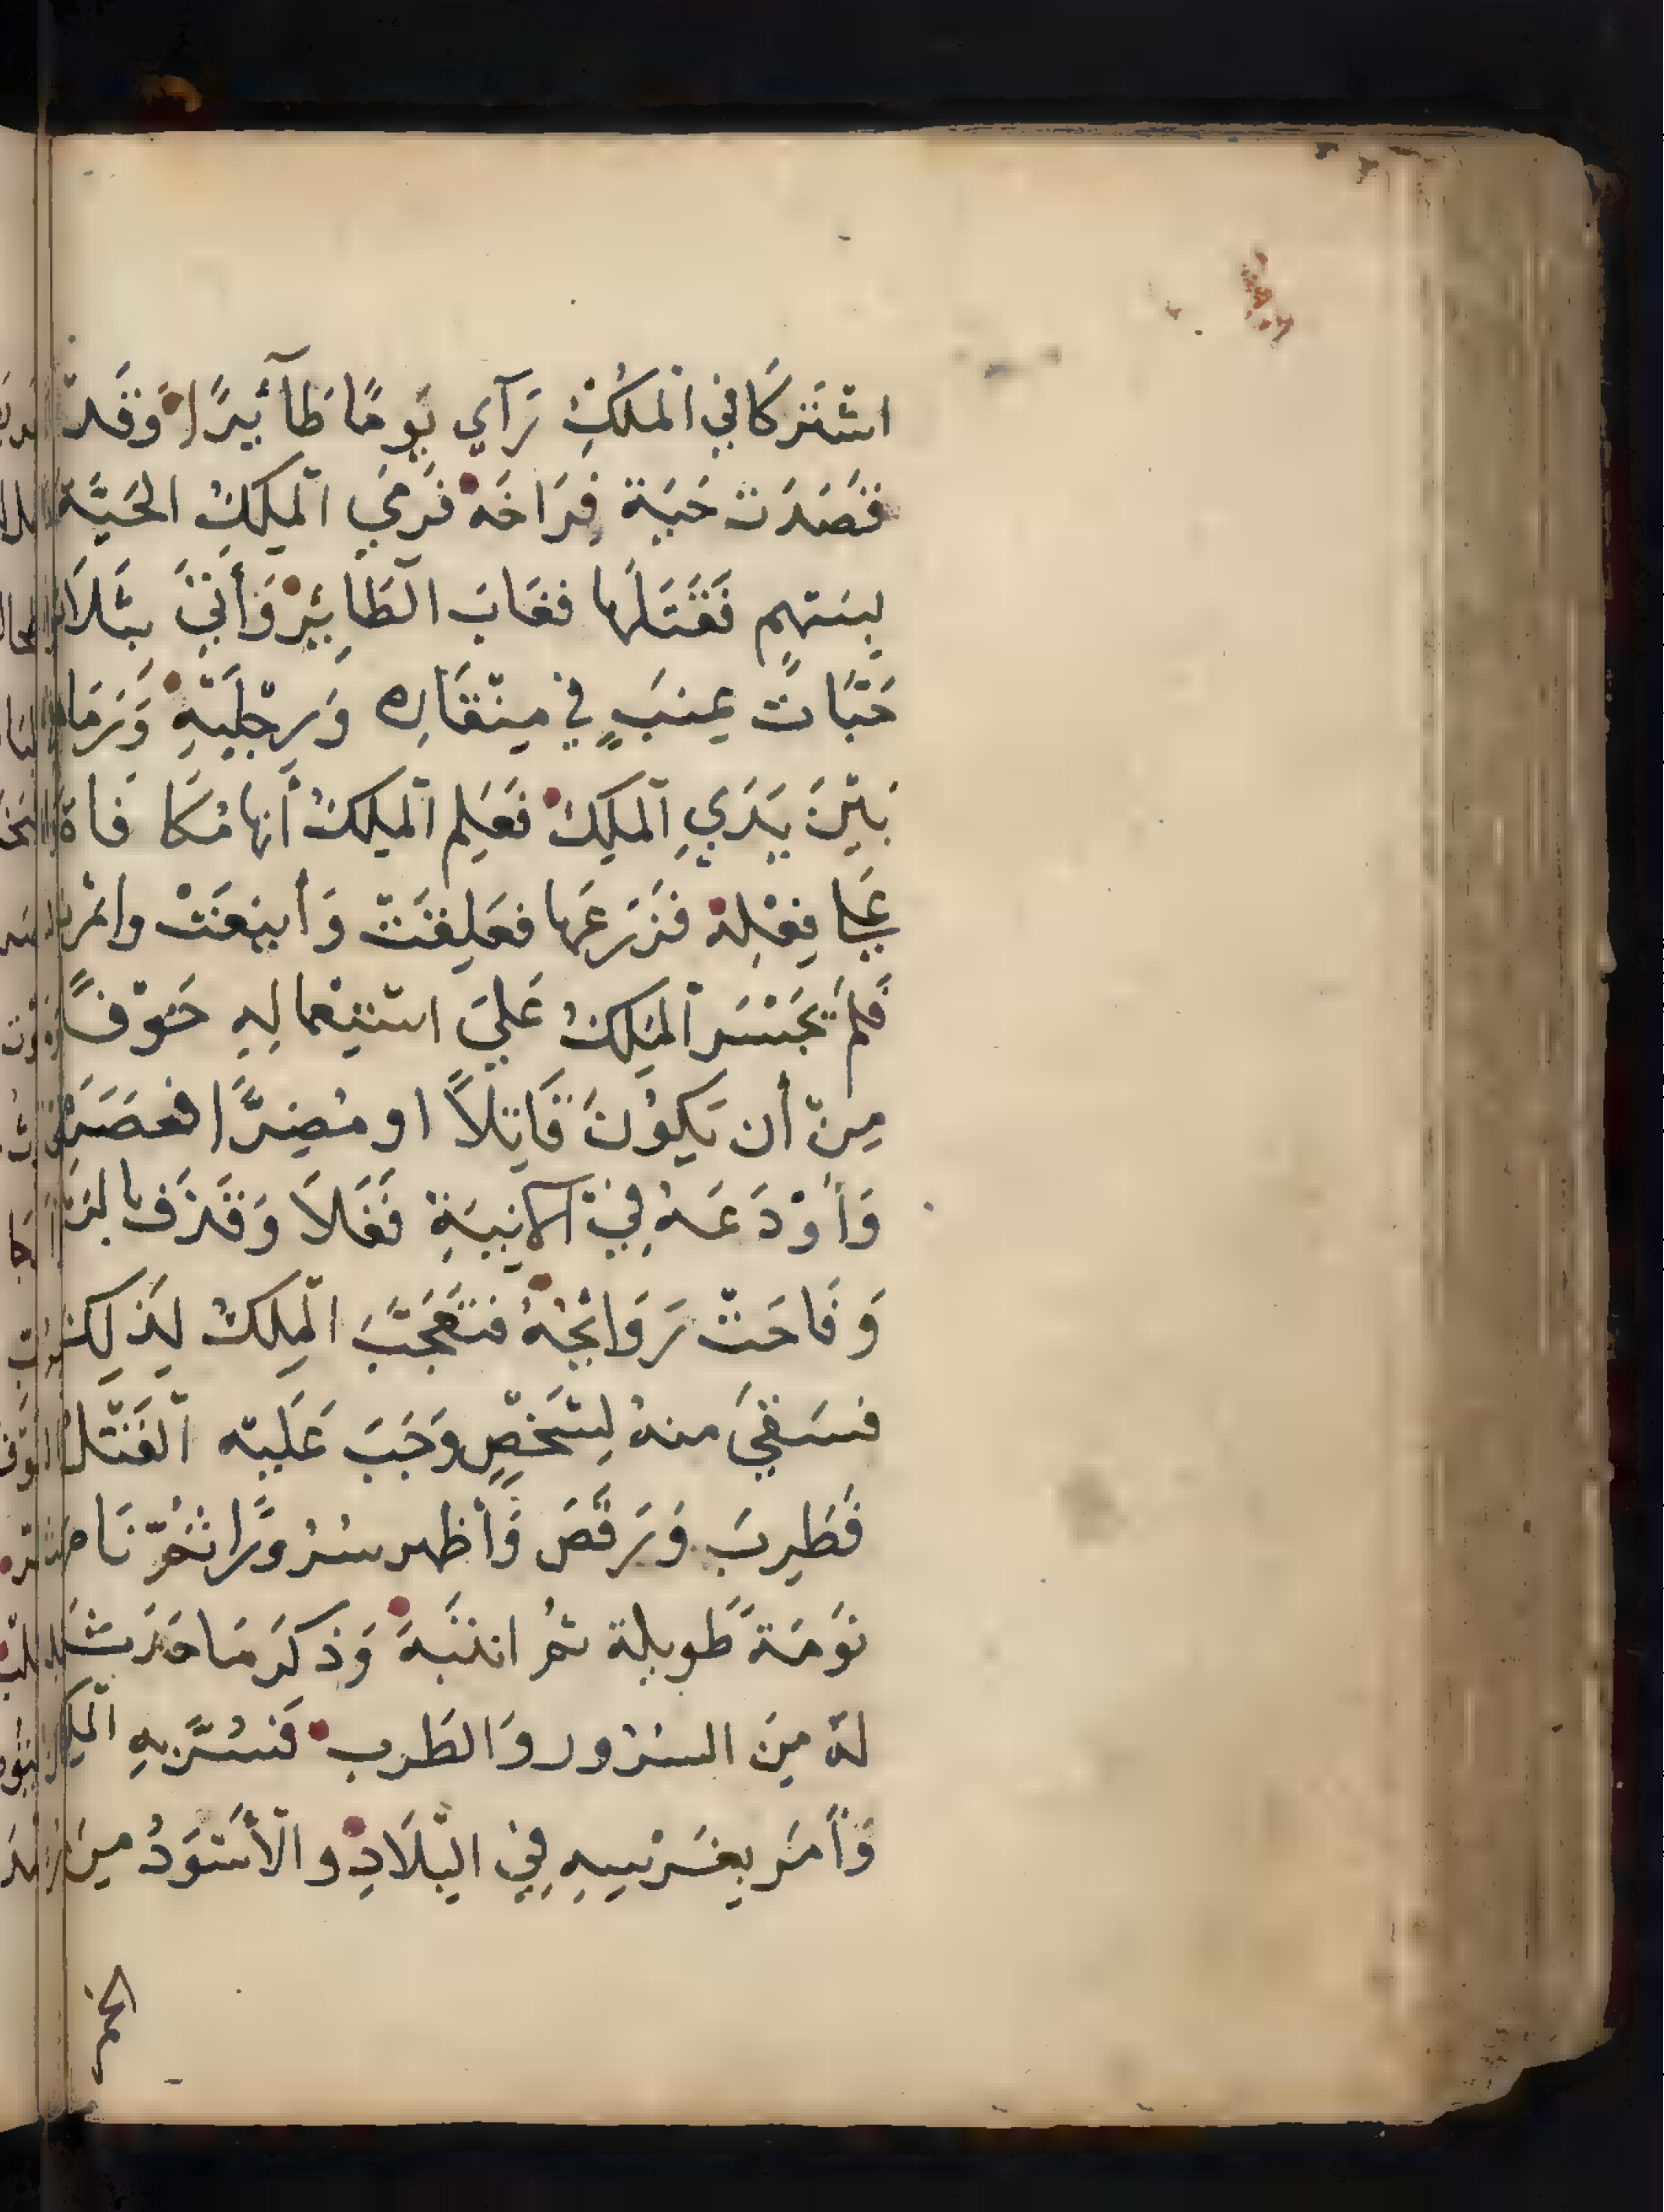 اشْتَركَا في الْملكُ رَآي يَومًا طَآئيرًا وَقَدْ
قَصَدَت حَية فِرَاخَهُ فَرَمَي الْمَلِكُ الحَيَّة
بِسَهمٍ فَقَتَلَها فغَابَ الطَّائِرْ وَأَتَيَ بثَلَاث
حَبَّاتٌ عِنَبٍ في مِنْقَارِه وَرِجْلَيْهِ وَرَمَاهم
بَيْنَ يَدَيِ الْمَلِكْ فَعَلِم الْمَلِكُ أَنها مُكَا فَاة
عَلي فِعْلِهْ فَزَرَعَها فعَلِقَتْ وَأَينَعَتْ واثْمرت
فَلَمْ يَجْسَر الْمَلِكُ عَليَ اسْتِعْمالِهِ خَوْفًا
مِنْ أَن يَكُوْنَ قَاتِلاً او مُضِرًّا فعَصَرَهُ
وَأَوْدَعَهُ فِيْ الانِيَةِ فَغَلاَ وَقَذَف بالزبد
وَفَاحَتْ رَوَائحُهُ فَتَعَجَّبَ الْمِلكُ لِذَلِكَ
فسَقَيَ منهُ لِشَخْصٍ وَجَبَ عَلَيْه الْقَتْلُ
فَطَرِبَ وَرَقَصَ وَأَظهر سُرُورًا ثُمّ نَام
نَوْمَةً طَويلة ثمُ انتَبَهَ وَذكَرَ مَا حَدَثَ
لهُ مِنَ السُرُور وَالطَرب فَسُرَّ بِهِ الْملِك
وَأَمَر بِغَرْسِهِ فِي الْبِلَادِ والْأَسْوَدُ مِنَ